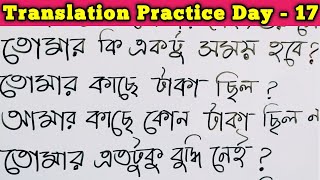 Translation Practice Day - 17
তোমার কি একটু সময় হবে?
তোমার কাছে টাকা ছিল?
আমার কাছে কোন টাকা ছিল ন
তোমার এতটুকু বুদ্ধি নেই?